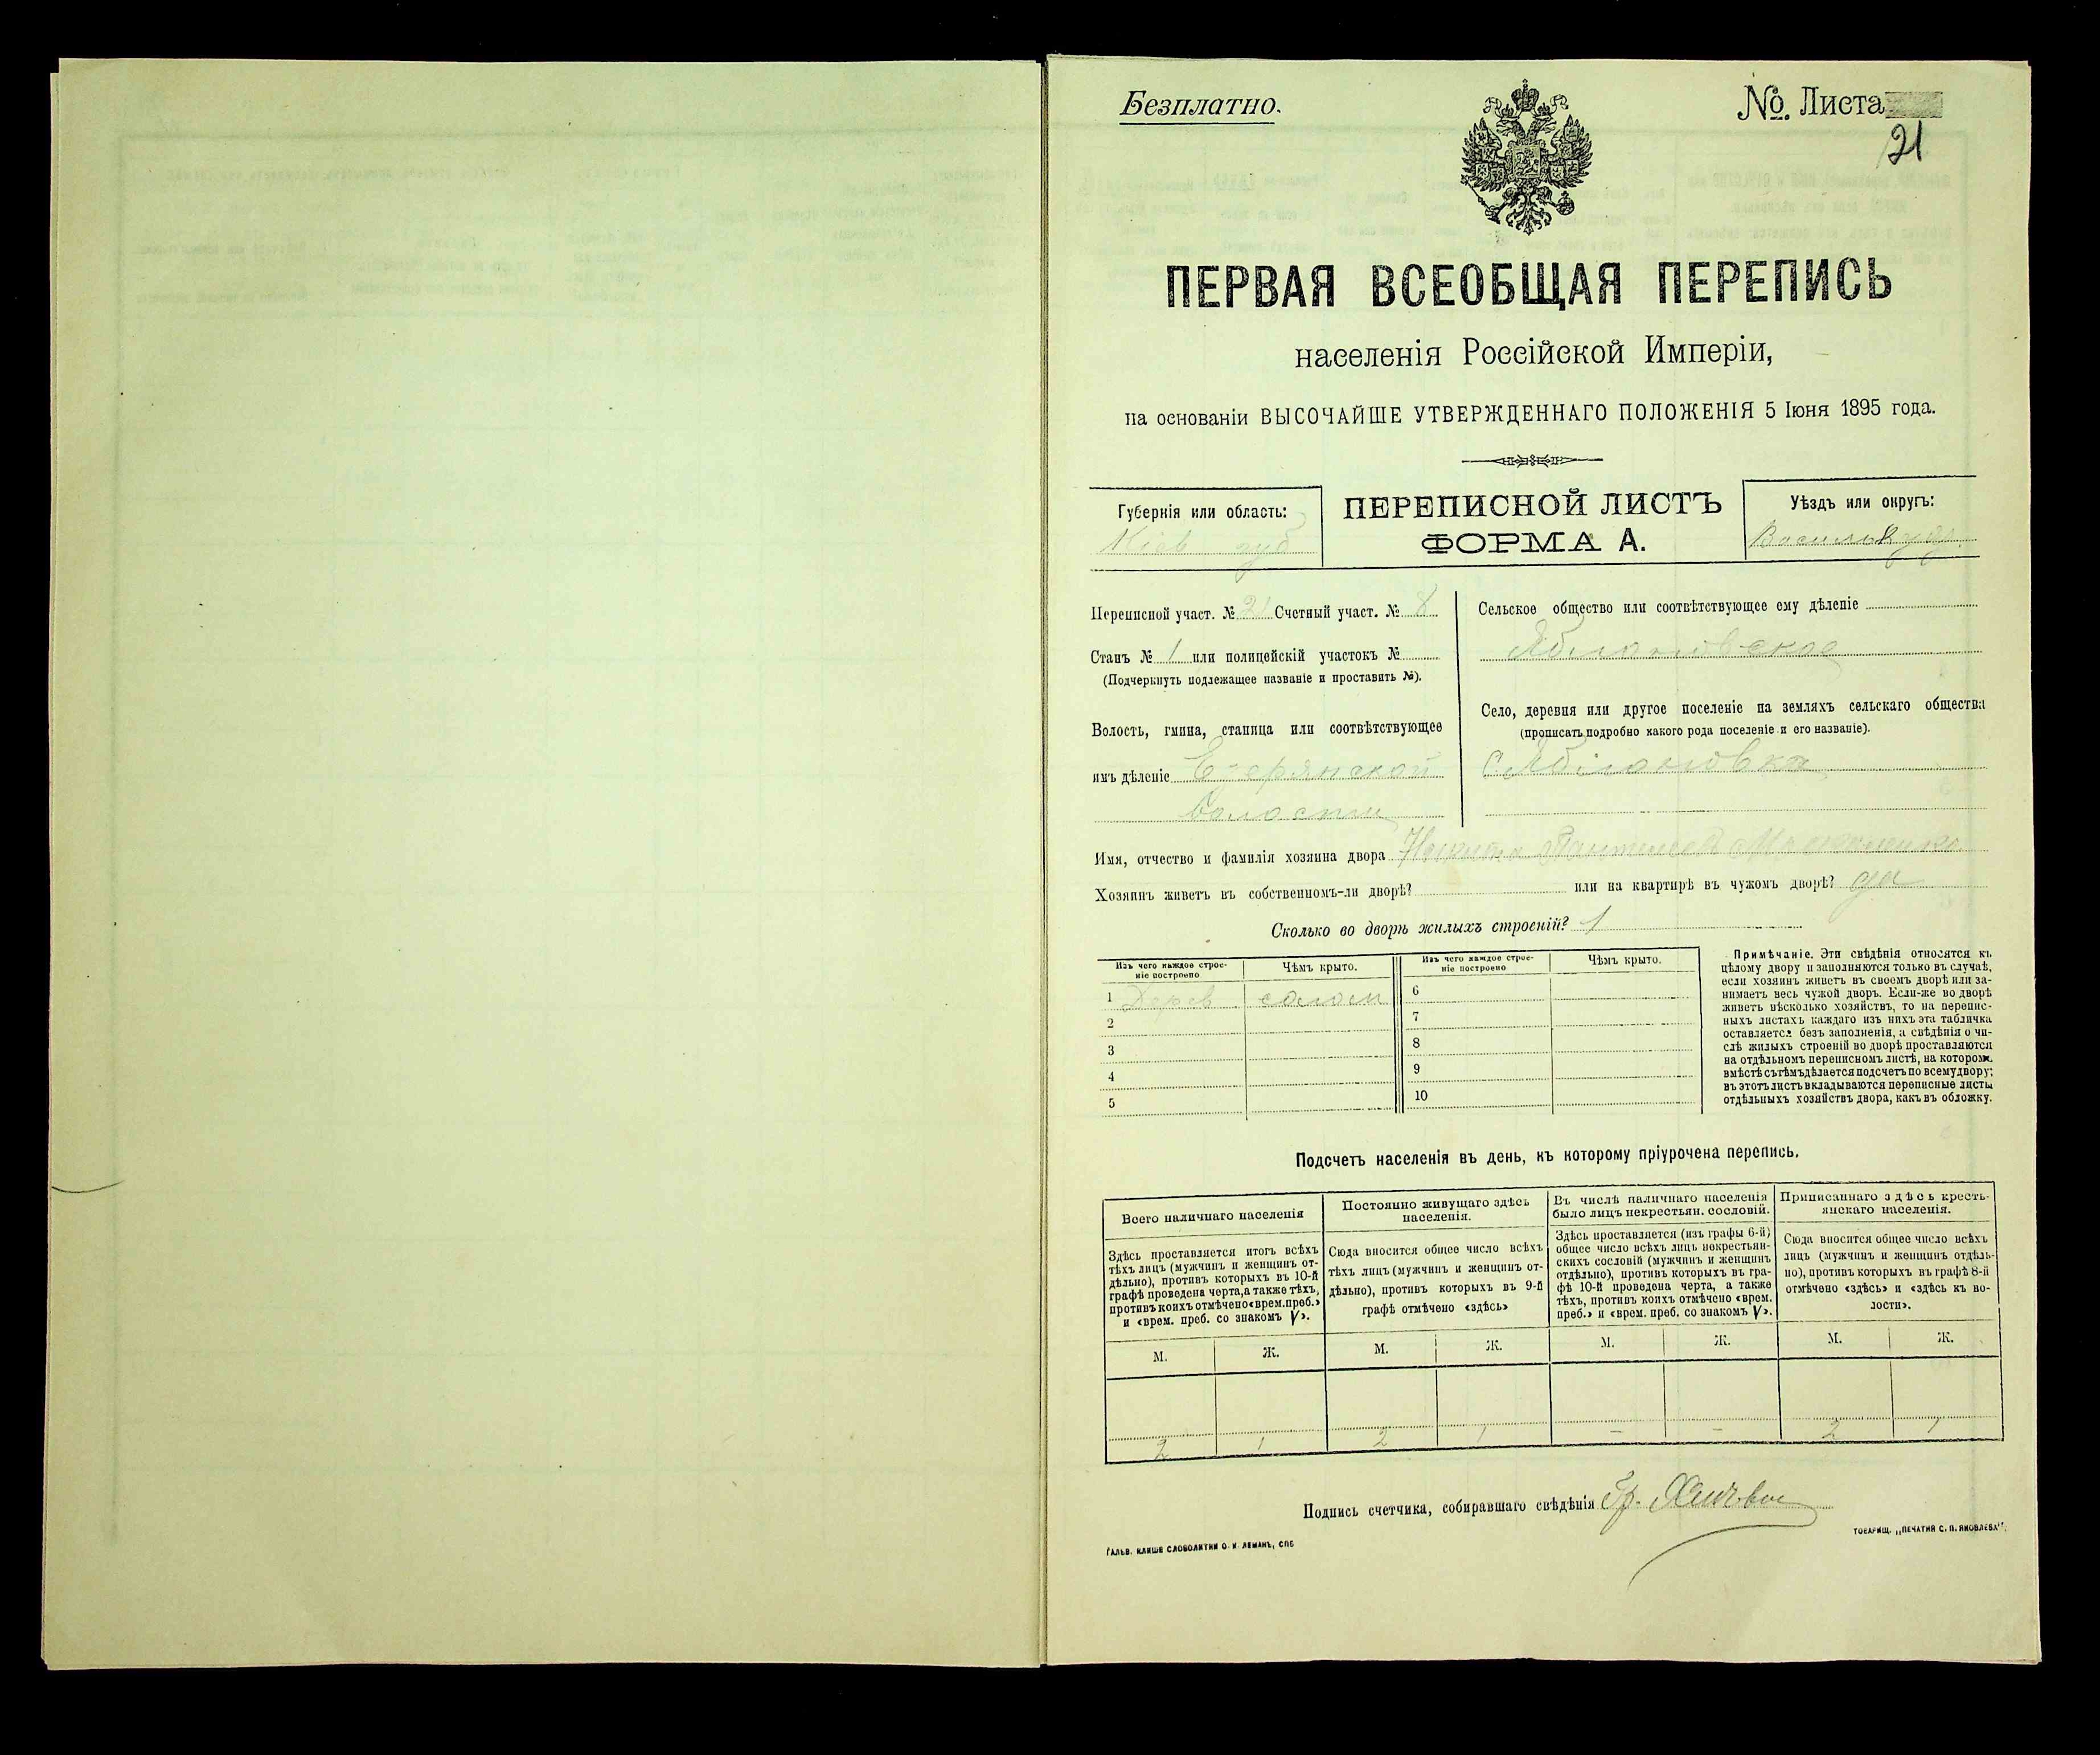 Безплатно.
№. Листа
21
ПЕРВАЯ ВСЕОБЩАЯ ПЕРЕПИСЬ
населенія Россійской Имперіи,
на основаніи ВЫСОЧАЙШЕ УТВЕРЖДЕННАГО ПОЛОЖЕНІЯ 5 Іюня 1895 года.
Губернія или область:
Кіев губ
ПЕРЕПИСНОЙ ЛИСТЪ
ФОРМА А.
Уѣздъ или округъ:
Переписной участ. № 21 Счетный участ. № 8
Станъ № 1 или полицейскій участокъ №
(Подчеркнуть подлежащее названіе и проставить №).
Волость, гмина, станица или соотвѣтствующее
имъ дѣленіе Езерянской
волости
Сельское общество или соотвѣтствующее ему дѣленіе
Яблоновское
Село, деревня или другое поселеніе на земляхъ сельскаго общества
(прописать подробно какого рода поселеніе и его названіе).
С. Яблоновка
Имя, отчество и фамилія хозяина двора
Хозяинъ живетъ въ собственномъ-ли дворѣ? или на квартирѣ въ чужомъ дворѣ? да
Сколько во дворѣ жилыхъ строеній? 1
Изъ чего каждое строе-
ніе построено
Чѣмъ крыто.
Изъ чего каждое строе-
ніе построено
Чѣмъ крыто.
1 Дерев солом
2
3
4
5
6
7
8
9
10
Примѣчаніе. Эти свѣдѣнія относятся къ
цѣлому двору и заполняются только въ случаѣ,
если хозяинъ живетъ въ своемъ дворѣ или за-
нимаетъ весь чужой дворъ. Если-же во дворѣ
живетъ нѣсколько хозяйствъ, то на перепис-
ныхъ листахъ каждаго изъ нихъ эта табличка
оставляется безъ заполненія, а свѣдѣнія о чи-
слѣ жилыхъ строеній во дворѣ проставляются
на отдѣльномъ переписномъ листѣ, на которомъ
вмѣстѣ съ тѣмъ дѣлается подсчетъ по всему двору;
въ этотъ листъ вкладываются переписные листы
отдѣльныхъ хозяйствъ двора, какъ въ обложку.
Подсчетъ населенія въ день, къ которому пріурочена перепись.
Всего наличнаго населенія
Здѣсь проставляется итогъ всѣхъ
тѣхъ лицъ (мужчинъ и женщинъ от-
дѣльно), противъ которыхъ въ 10-й
графѣ проведена черта, а также тѣхъ,
противъ коихъ отмѣчено «врем. преб.»
и «врем. преб. со знакомъ V».
Постоянно живущаго здѣсь
населенія.
Сюда вносится общее число всѣхъ
тѣхъ лицъ (мужчинъ и женщинъ от-
дѣльно), противъ которыхъ въ 9-й
графѣ отмѣчено «здѣсь»
Въ числѣ наличнаго населенія
было лицъ некрестьян. сословій.
Здѣсь проставляется (изъ графы 6-й)
общее число всѣхъ лицъ некрестьян-
скихъ сословій (мужчинъ и женщинъ
отдѣльно), противъ которыхъ въ гра-
фѣ 10-й проведена черта, а также
тѣхъ, противъ коихъ отмѣчено «врем.
преб.» и «врем. преб. со знакомъ V».
Приписаннаго здѣсь кресть-
янскаго населенія.
Сюда вносится общее число всѣхъ
лицъ (мужчинъ и женщинъ отдѣль-
но), противъ которыхъ въ графѣ 8-й
отмѣчено «здѣсь» и «здѣсь къ во-
лости».
М. Ж. М. Ж. М. Ж. М. Ж.
2 1 2 1 – – 2 1
Подпись счетчика, собиравшаго свѣдѣнія Гр.
ГАЛЬВ. КЛИШЕ СЛОВОЛИТНИ О. И. ЛЕМАНЪ, СПБ
ТОВАРИЩ. „ПЕЧАТНЯ С. П. ЯКОВЛЕВА".